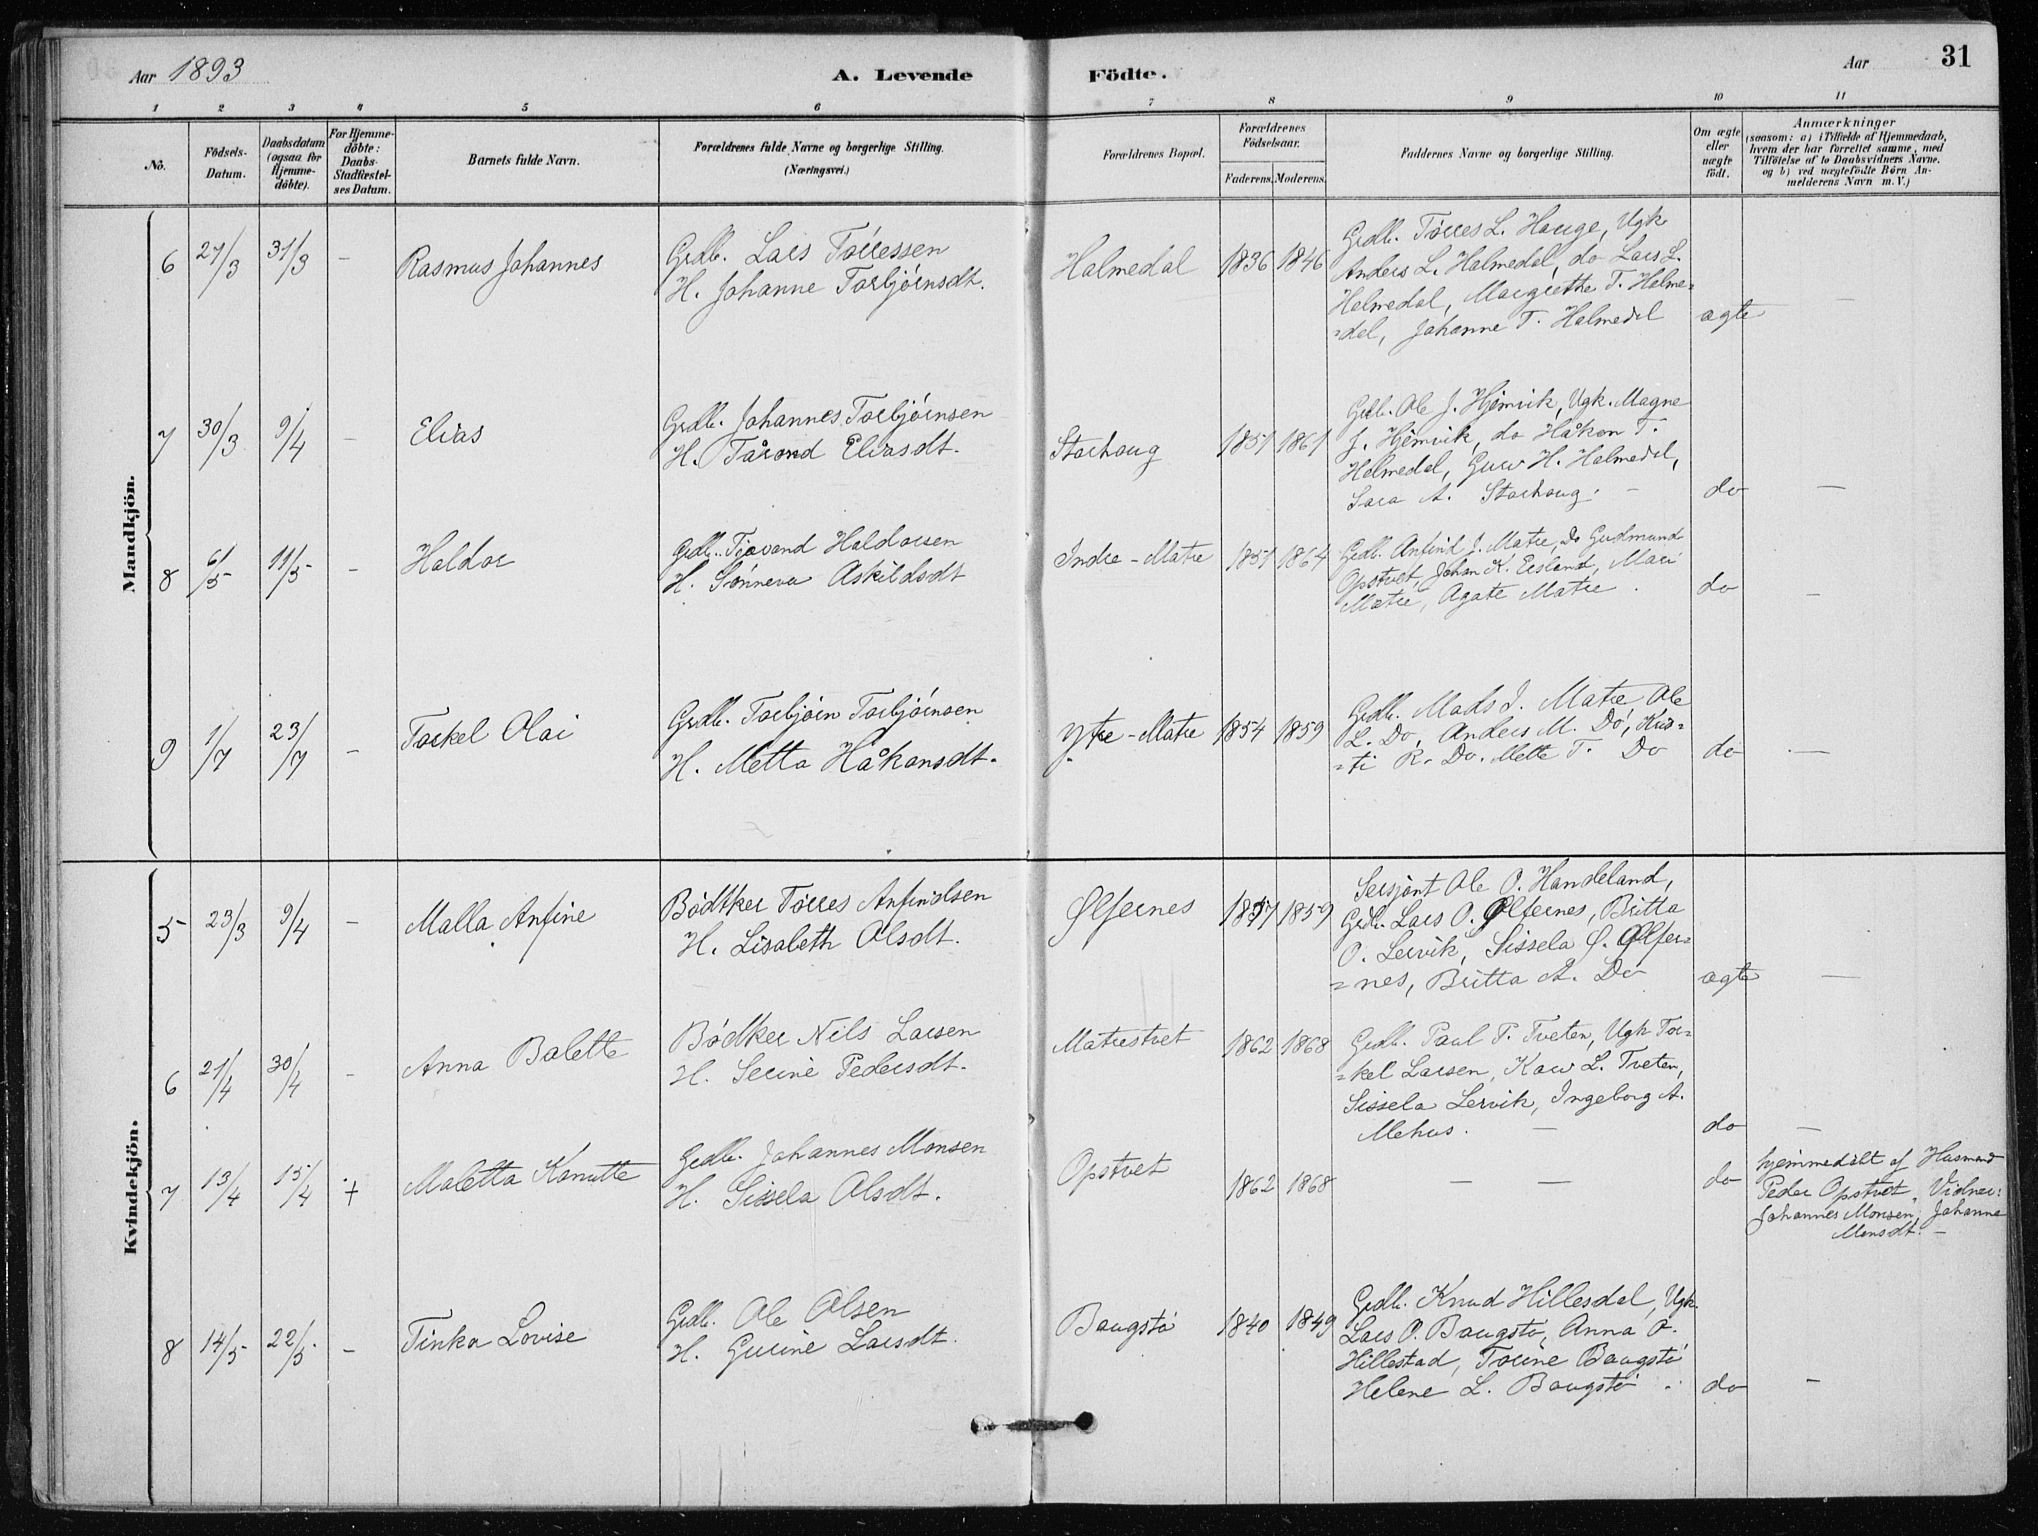 Aar 1893
A. Levende Födte.
Aar
31
1 2 3 4 5 6 7 8 9 10 11
No.
Födsels-
Datum.
Daabsdatum
(ogsaa for
Hjemme-
döbte).
For Hjemme-
döbte:
Daabs-
Stadfæstel-
ses Datum.
Barnets fulde Navn.
Forældrenes fulde Navne og borgerlige Stilling.
(Næringsvei.)
Forældrenes Bopæl.
Forældrenes
Födselsaar.
Faderens. Moderens.
Faddernes Navne og borgerlige Stilling.
Om ægte
eller
uægte
födt.
Anmærkninger
(saasom: a) i Tilfælde af Hjemmedaab,
hvem der har forrettet samme, med
Tilföielse af to Daabsvidners Navne,
og b) ved uægtefödte Börn An-
melderens Navn m. V.)
Mandkjön.
6 27/3 31/3 –
Rasmus Johannes
Grdb. Lars Tørressen
H. Johanne Torbjørnsdt.
Halmedal
1836 1846
Grdb. Tørres L. Hauge, Ugk
Anders L. Halmedal, do Lars L.
Helmedal, Margrethe T. Helme=
=dal, Johanne T. Halmedal
ægte –
7 30/3 9/4 –
Elias
Grdb. Johannes Torbjørnsen
H. Tårond Eliasdt.
Storhoug
1851 1861
Grdb. Ole J. Hjemvik, Ugk. Magne
J. Hjemvik, do Håkon T.
Helmedal, Guro H. Halmedal,
Sara A. Storhoug. –
do –
8 6/5 11/5 –
Haldor
Grdb. Tjovand Haldorsen
H. Sønneva Askildsdt
Indre-Matre
1851 1864
Grdb. Anfind J. Matre, Do Gudmund
Opstvet, Johan K. Eisland, Mari
Matre, Agate Matre.
do –
9 1/7 23/7 –
Torkel Olai
Grdb. Torbjørn Torbjørnsen
H. Metta Håkonsdt.
Ytre-Matre
1854 1859
Grdb. Mads J. Matre Ole
L. Do, Anders M. Do, Kris=
=ti R. Do. Mette T. Do
do –
Kvindekjön.
5 23/3 9/4 –
Malla Anfine
Bødtker Tørres Anfindsen
H. Lisabeth Olsdt.
Ølfernes
1857 1859
Sersjant Ole O. Handeland,
Grdb. Lars O. Ølfernes, Britta
O. Lervik, Sissela S. Ølfer=
=nes, Britta A. Do
ægte –
6 21/4 30/4 –
Anna Balette
Bødker Nils Larsen
H. Serine Pedersdt.
Matrestvet
1862 1868
Grdb. Paul P. Tveten, Ugk Tor=
=kel Larsen, Kari L. Tveten,
Sissela Lervik, Ingeborg A.
Mehus. –
do –
7 13/4 15/4 +
Maletta Kanutte
Grdb. Johannes Monsen
H. Sissela Olsdt.
Opstvet
1862 1868
– –
do
hjemmedøbt af Husmand
Peder Opstvet, Vidner:
Johannes Monsen, Johanne
Monsdt. –
8 14/5 22/5 –
Tinka Lovise
Grdb. Ole Olsen
H. Gurine Larsdt.
Baugstø
1840 1849
Grdb. Knud Hillesdal, Ugk.
Lars O. Baugstø, Anna O.
Hillestad, Torine Baugstø
Helene L. Baugstø.
do –